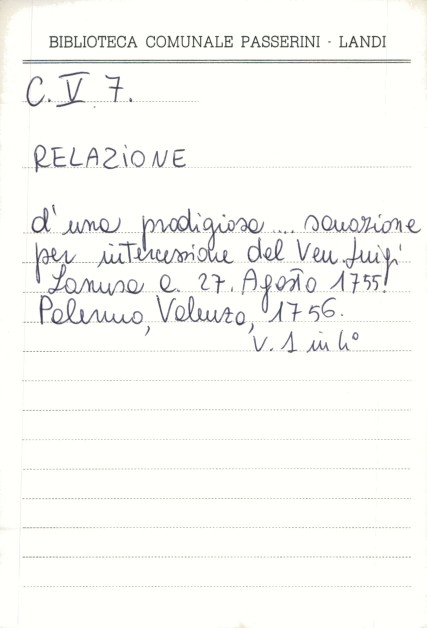 BIBLIOTECA COMUNALE PASSERINI - LANDI
C. V 7.
RELAZIONE
d'una prodigiosa ... sanazione
per intercessione del Ven. Luigi
Lanusa a. 27. Agosto 1755.
Palermo, Valenza, 1756.
V. 1 in 4°